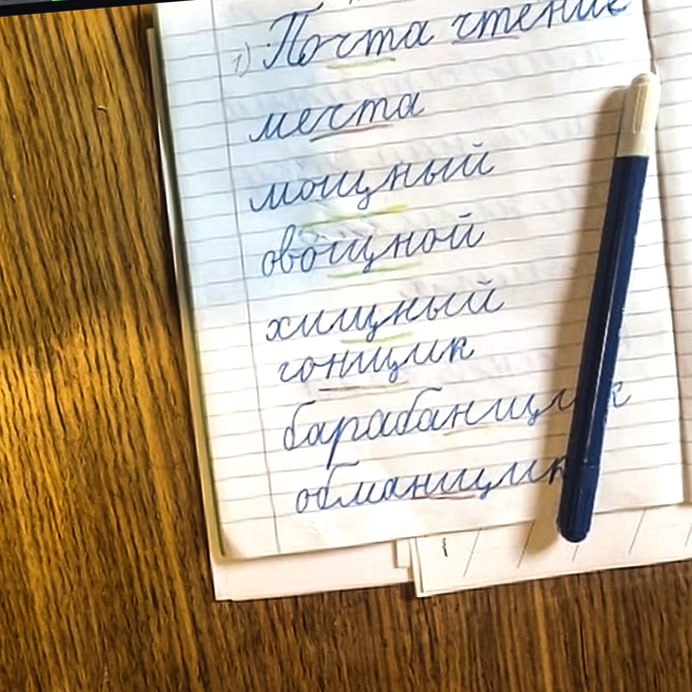 1) Почта чтение
мечта
мощный
овощной
хищный
гонщик
барабанщик
обманщик